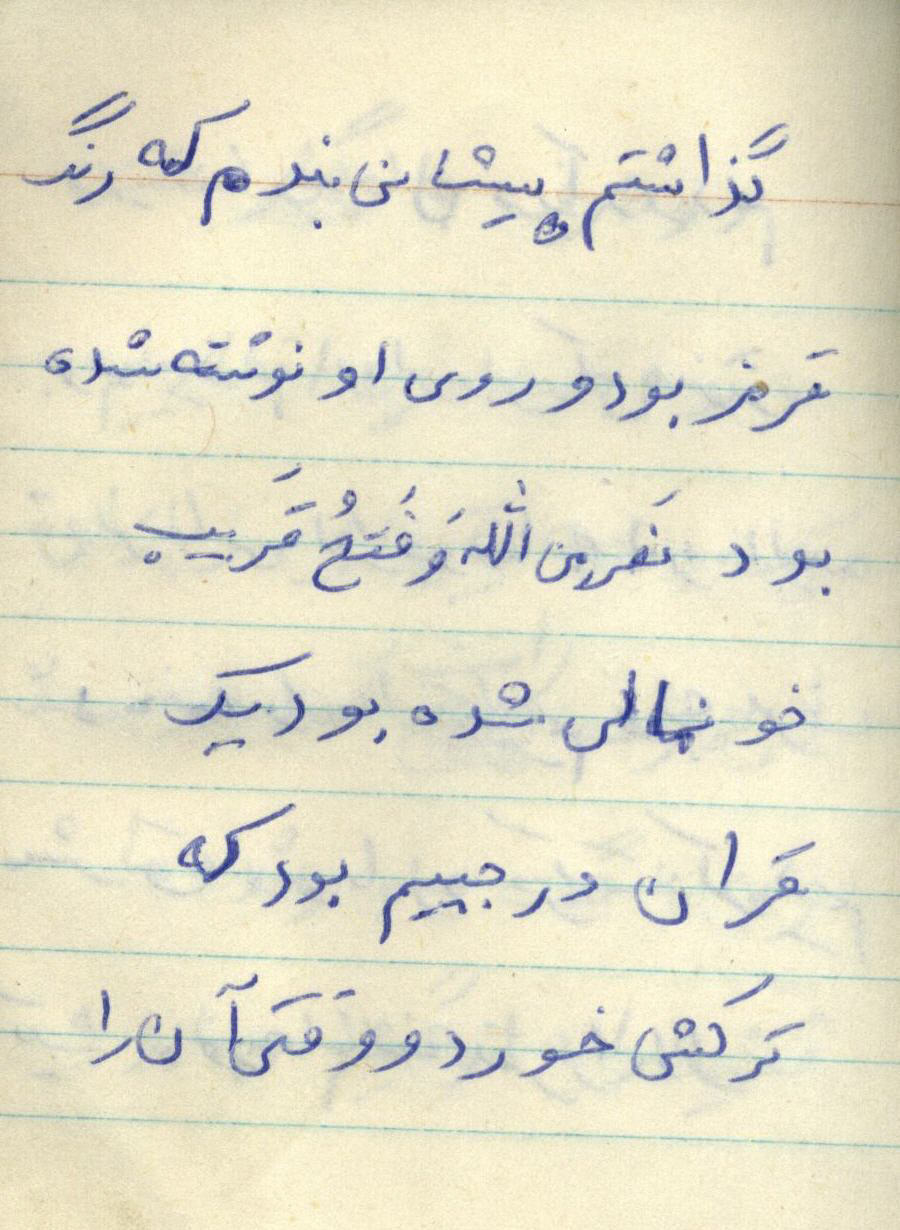 گذاشتم پیشانی بندم که رنگ
قرمز بود و روی او نوشته شده
بود نَصرمن الله وَ فَتحُ قَریب
خونمالی شده بود یک
قران در جیبم بود که
ترکش خورد و وقتی آن را